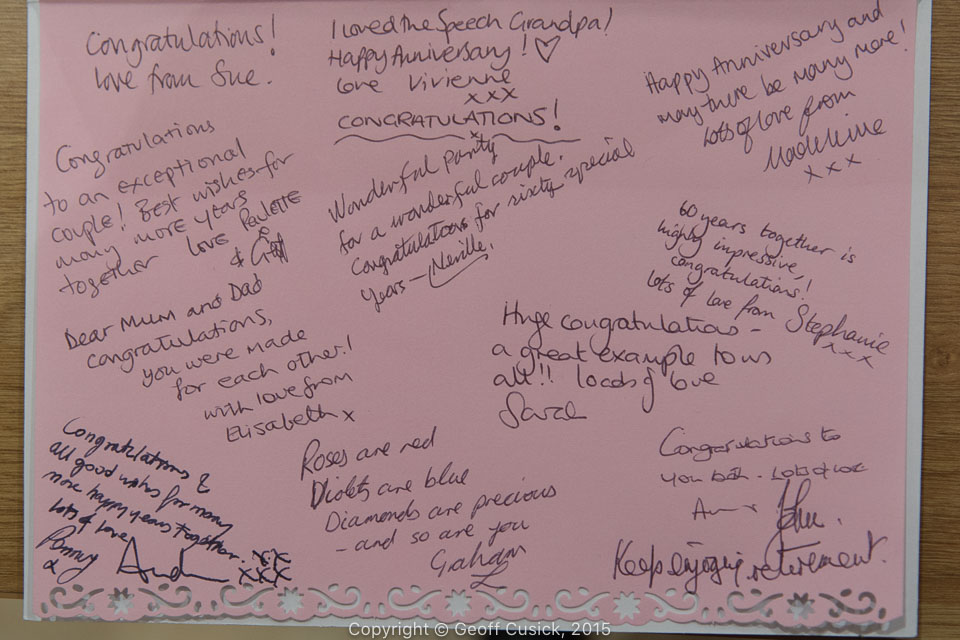 Congratulations!
love from Sue.
I loved the Speech Grandpa!
Happy Anniversary! ♡
love Vivienne
xxx
CONGRATULATIONS!
x
Happy Anniversary and
may there be many more!
Lots of love from
Madeleine
xxx
Congratulations
to an exceptional
couple! Best wishes for
many more years
together love Paulette
&
Wonderful party
for a wonderful couple.
Congratulations for sixty special
years - Neville.
60 years together is
highly impressive,
congratulations!
lots of love from Stephanie
xxx
Dear Mum and Dad
congratulations,
you were made
for each other!
with love from
Elisabeth x
Huge congratulations -
a great example to us
all!! loads of love
Sarah
Congratulations &
all good wishes for many
more happy years together.
Lots of love
Penny
x
xx
xxx
Roses are red
Violets are blue
Diamonds are precious
- and so are you
Graham
Congratulations to
you both. Lots of love
John.
Keep enjoying retirement.
Copyright © Geoff Cusick, 2015